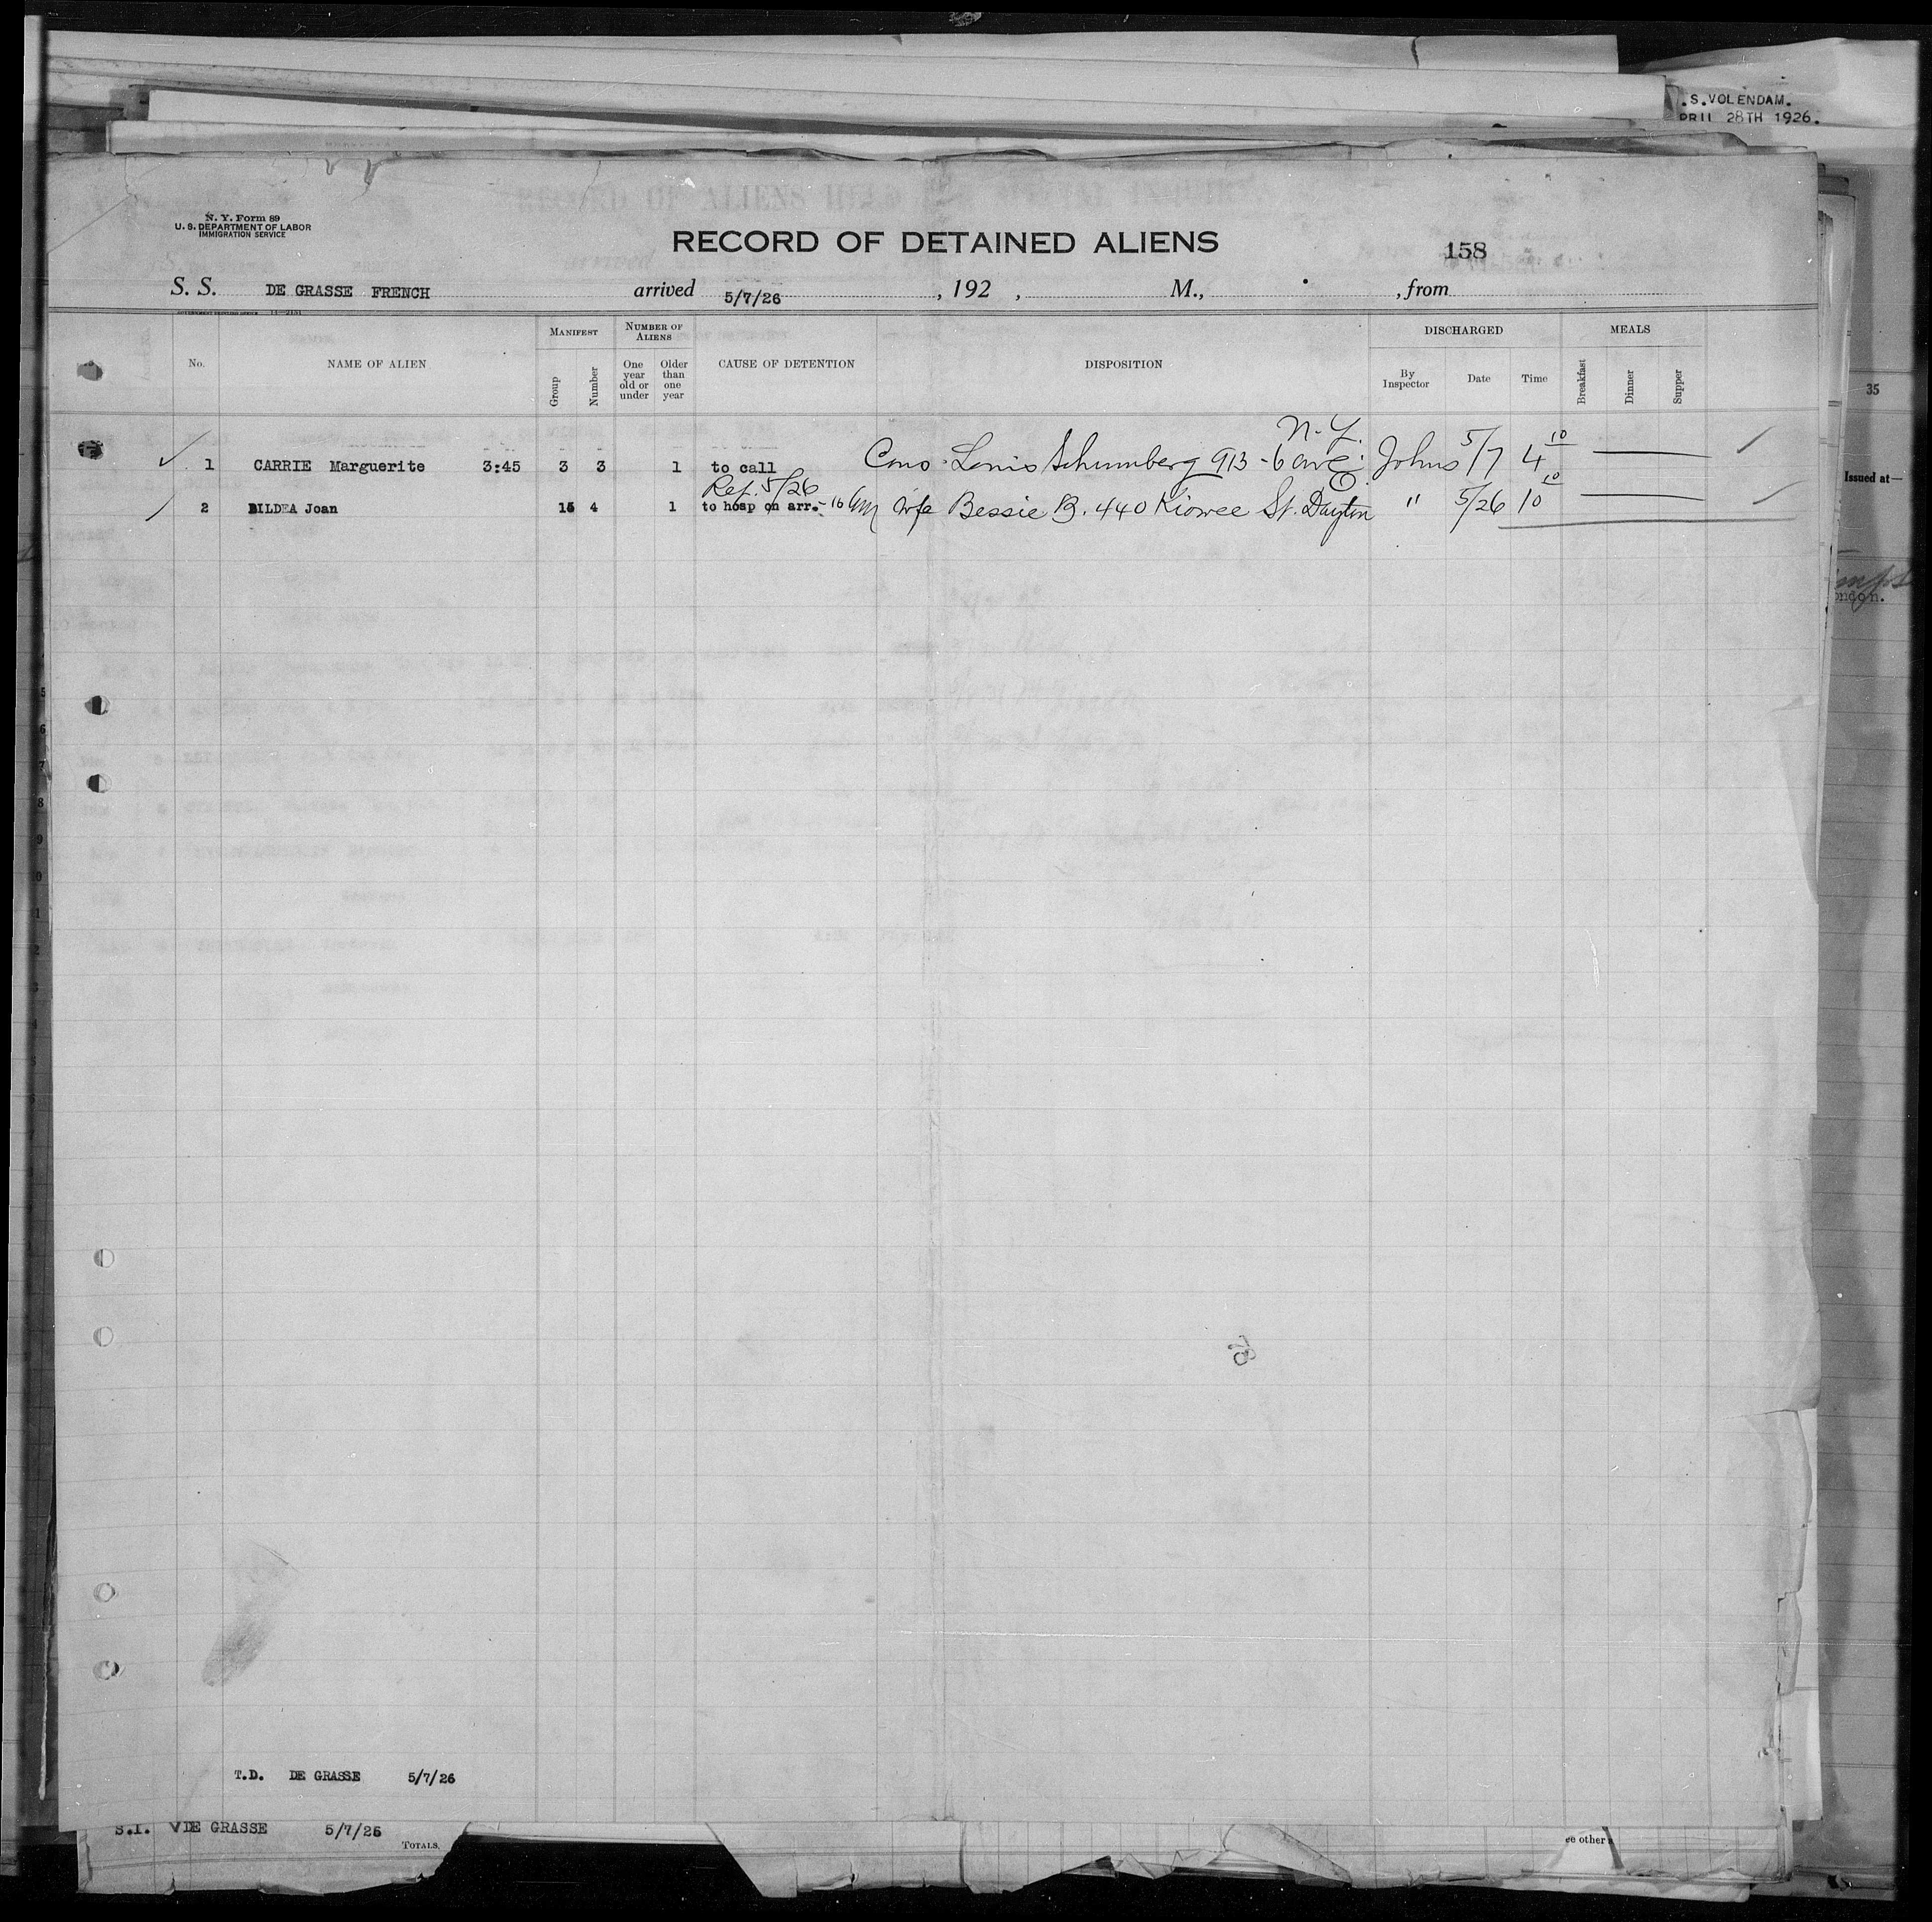 .S.VOLENDAM.
PRIL 28TH 1926.
N. Y. Form 89
U. S. DEPARTMENT OF LABOR
IMMIGRATION SERVICE
RECORD OF DETAINED ALIENS
158
S. S. DE GRASSE FRENCH arrived 5/7/26 , 192 , M., , from
14—2151
No. NAME OF ALIEN MANIFEST Group Number NUMBER OF ALIENS One year old or under Older than one year CAUSE OF DETENTION DISPOSITION DISCHARGED By Inspector Date Time MEALS Breakfast Dinner Supper
35
N.Y.
1 CARRIE Marguerite 3:45 3 3 1 to call Cons. Louis Schumberg 913 - 6 ave. Johns 5/7 4 10
Ref. 5/26 O.
2 BILDEA Joan 15 4 1 to hosp on arr.- 10 am Wife Bessie B. 440 Kiowee St. Dayton " 5/26 10 10
Issued at—
ondon.
T.D. DE GRASSE 5/7/26
S.I. DE GRASSE 5/7/26
TOTALS.
ee other